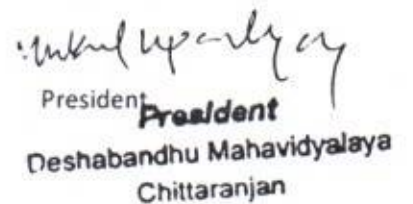 President
President
Deshabandhu Mahavidyalaya
Chittaranjan